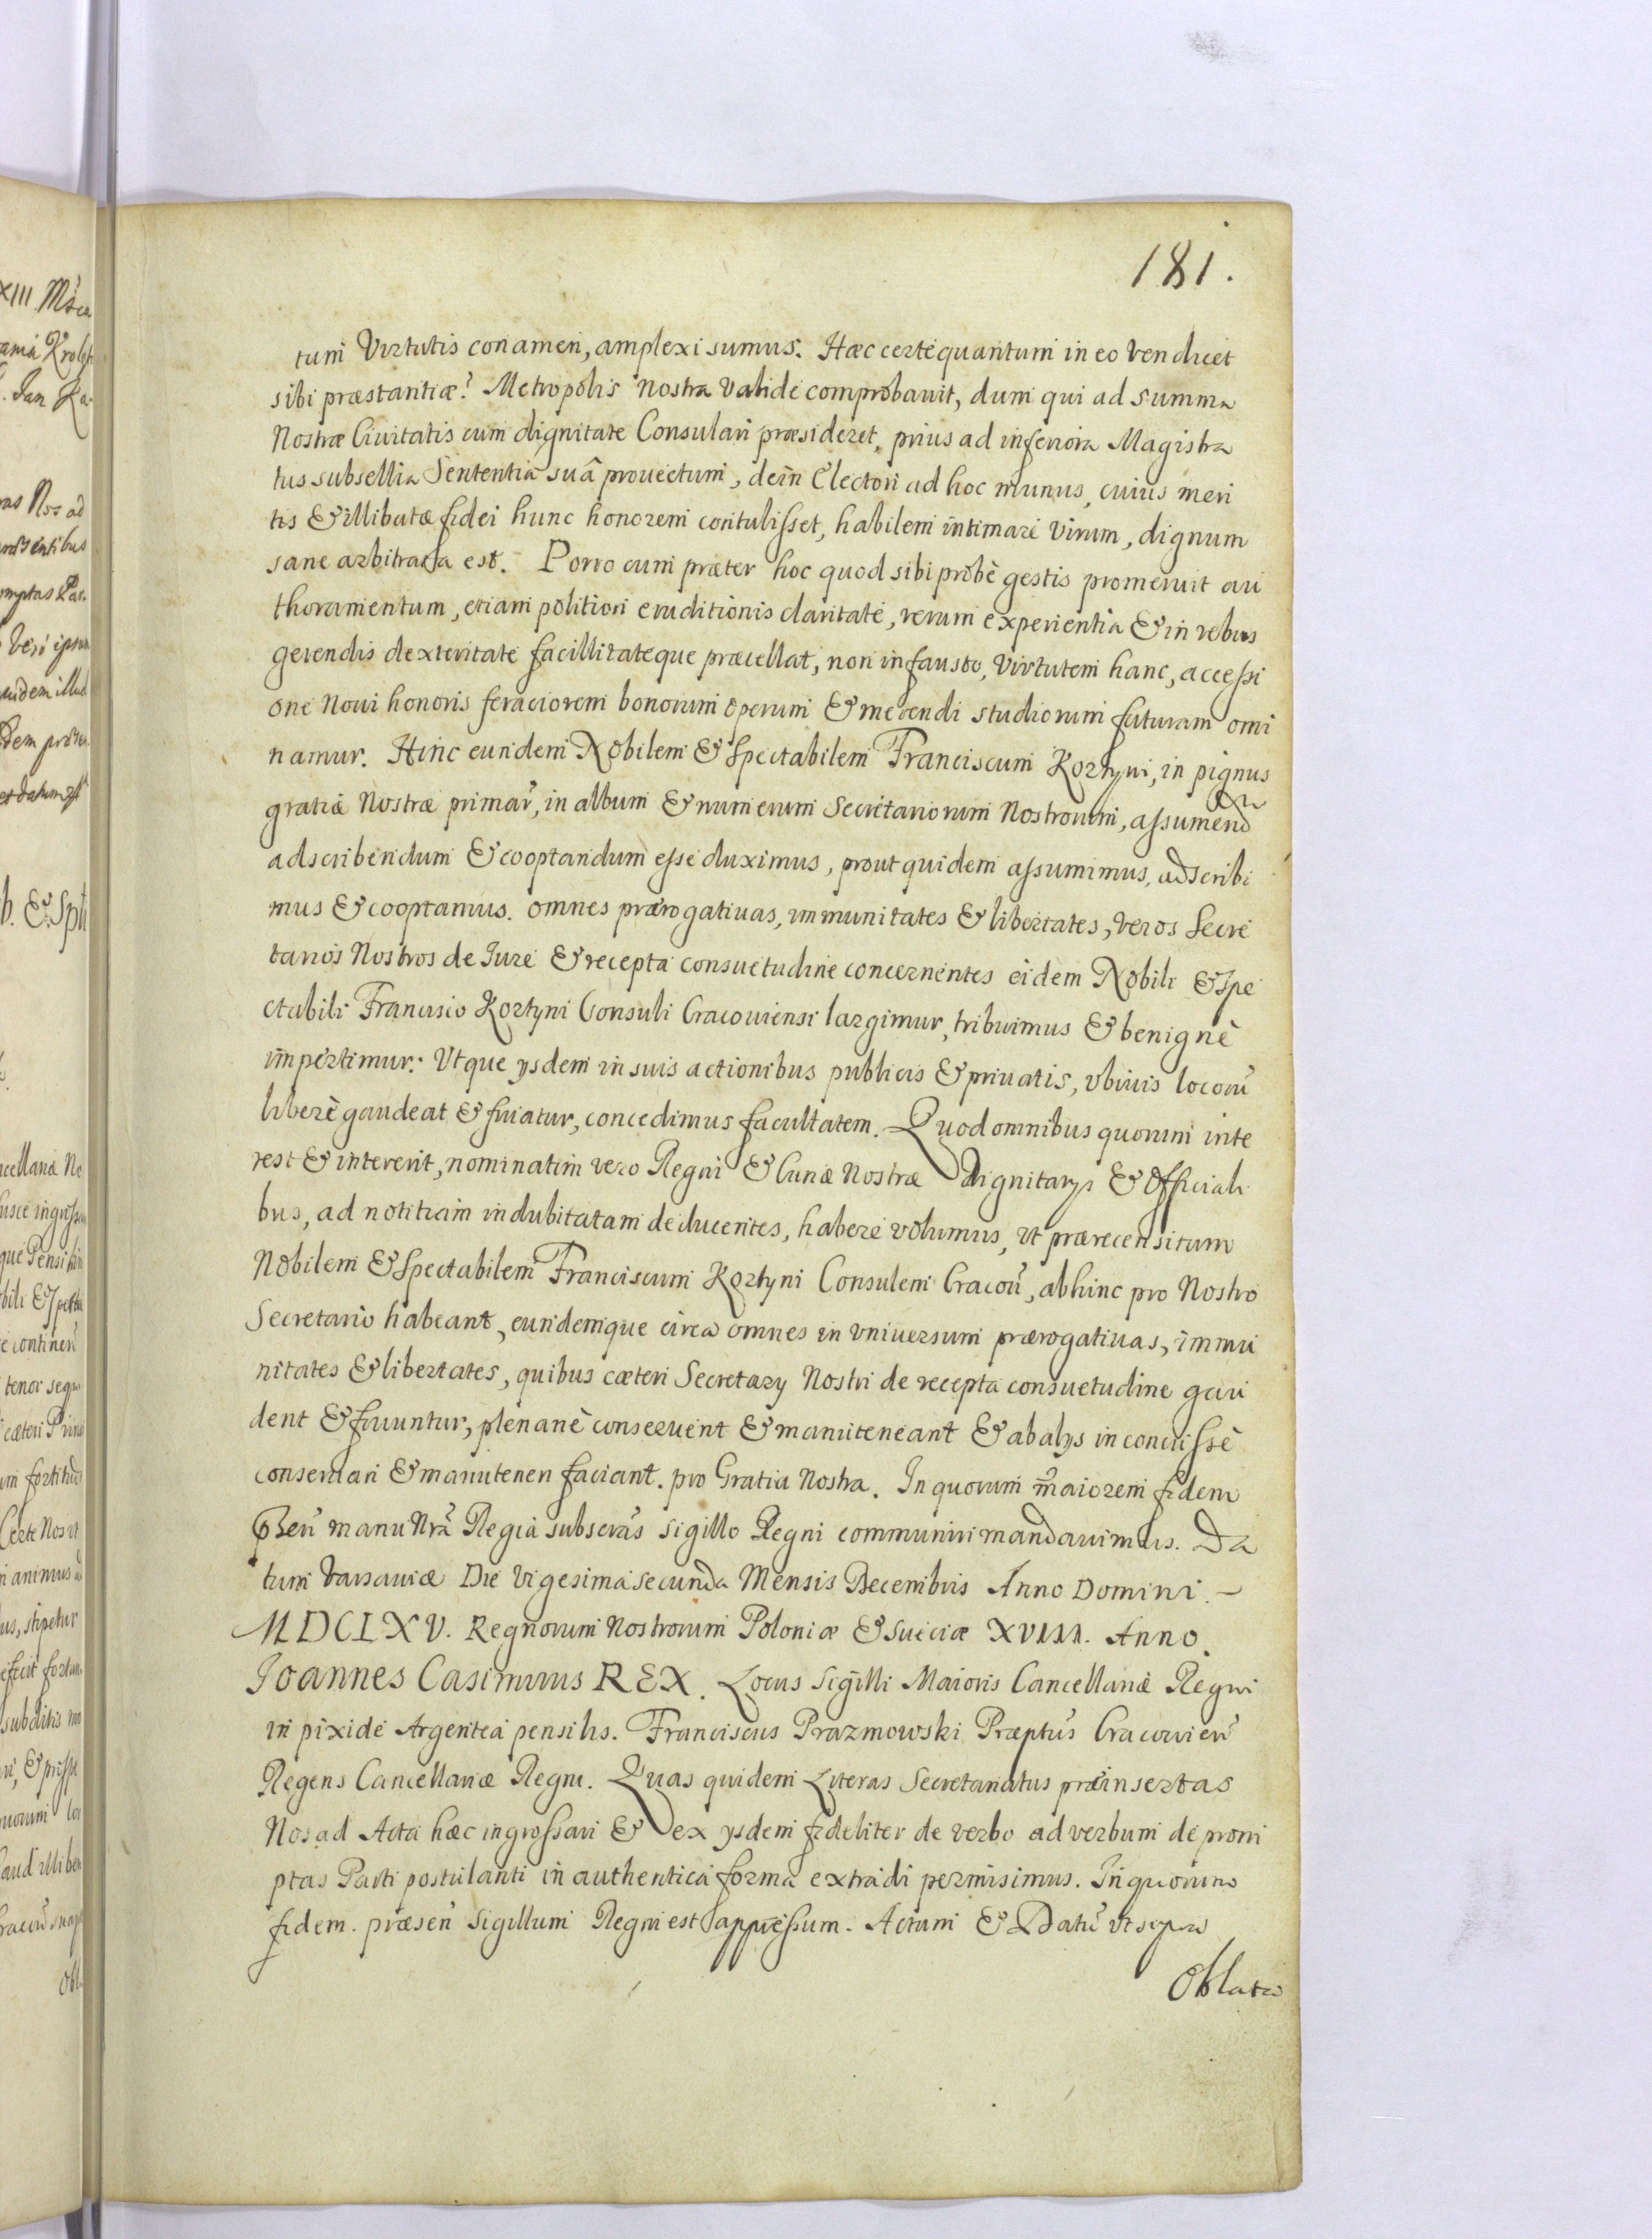 181.
tum Virtutis conamen, amplexi sumus. Hæc certè quantum in eo vendicet
sibi præstantiæ? Metropolis Nostra valide comprobavit, dum qui ad summa
Nostræ Civitatis cum dignitate Consulari præsideret, prius ad inferiora Magistra
tus subsellia Sententiâ suâ provectum, dein Electori ad hoc munus, cuius meri
tis & illibatæ fidei hunc honorem contulisset, habilem intimare virum, dignum
sane arbitrata est. Porro cum præter hoc quod sibi probè gestis promeruit au
thoramentum, etiam politiori eruditionis claritate, rerum experientia & in rebus
gerendis dexteritate facillitateque præcellat, non infausto, Virtutem hanc, accessi
one Novi honoris feraciorem bonorum operum & merendi studiorum futuram omi
namur. Hinc eundem Nobilem & Spectabilem Franciscum Kortyni, in pignus
gratiæ Nostræ primar, in album & numerum Secretariorum Nostrorum, assumend
adscribendum & cooptandum esse duximus, prout quidem assumimus, adscribi
mus & cooptamus. Omnes prærogativas, immunitates & libertates, veros Secre
tarios Nostros de Iure & recepta consuetudine concernentes eidem Nobili & Spe
ctabili Francisco Kortyni Consuli Cracoviensi largimur, tribuimus & benignè
impertimur. Vtque ysdem in suis actionibus publicis & privatis, vbivis locorũ
liberè gaudeat & fruatur, concedimus facultatem. Quod omnibus quorum inte
rest & intererit, nominatim vero Regni & Curiæ Nostræ Dignitarys & Officiali
bus, ad notitiam indubitatam deducentes, habere volumus, vt prærecensitum
Nobilem & Spectabilem Franciscum Kortyni Consulem Cracoũ, abhinc pro Nostro
Secretario habeant, eundemque circa omnes in vniversum prærogativas, immu
nitates & libertates, quibus cæteri Secretary Nostri de recepta consuetudine gau
dent & fruuntur, plenanè conservent & manuteneant & ab alys inconcussè
conservari & manuteneri faciant. pro Gratia Nostra. In quorum maiorem fidem
Pseñ manu Nrã Regia subscras sigillo Regni communiri mandavimus. Da
tum Varsaviæ Die Vigesima secunda Mensis Decembris Anno Domini. –
MDCLXV. Regnorum Nostrorum Poloniæ & Sueciæ XVIII. Anno.
Ioannes Casimirus REX. Locus Sigilli Maioris Cancellariæ Regni
in pixide Argentea pensilis. Franciscus Prazmowski Præptus Cracovieñ
Regens Cancellariæ Regni. Quas quidem Literas Secretariatus præinsertas
Nos ad Acta hæc ingrossari & ex ysdem fideliter de verbo ad verbum depromi
ptas Parti postulanti in authentica forma extradi permisimus. In quorum
fidem. præseñ Sigillum Regni est appressum. Actum & Datũ vt supra
Oblata